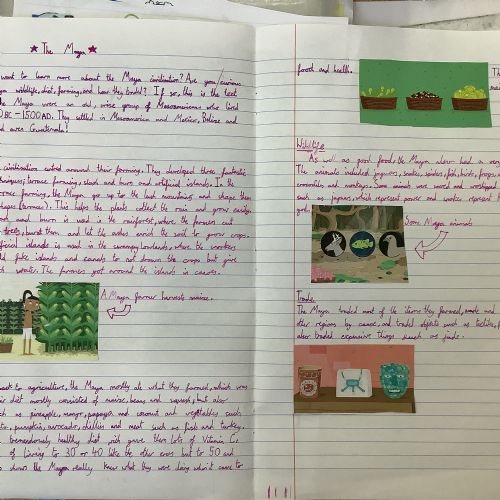 The Maya
want to learn more about the Maya civilisation? Are you curious
wildlife, diet, farming, and how they traded? If so, this is the text
the Maya were an old, wise group of Mesoamericans who lived
BC - 1500AD. They settled in Mesoamerica and Mexico, Belize and
area Guatemala!
civilisation centred around their farming. They developed three fantastic
techniques; terrace farming, slash and burn and artificial islands. In the
terrace farming, the Maya go up to the lush mountains and shape them
shapes (terraces). This helps the plants collect the rain and grow easily.
and burn is used in the rainforest, where the farmers cut
trees, burnt them and let the ashes enrich the soil to grow crops.
islands is used in the swampy lowlands, where the workers
fake islands and canals to not drown the crops but give
water. The farmers got around the islands in canoes.
A Maya farmer harvests maize.
to agriculture, the Maya mostly ate what they farmed, which was
diet mostly consisted of maize, beans and squash, but also
as pineapple, mango, papaya and coconut and vegetables such
pumpkin, avocado, chillies and meat such as fish and turkey.
tremendously healthy diet gave them lots of Vitamin C,
of living to 30 or 40 like the other eras but to 50 and
shows the Maya really knew what they were doing when it came to
food and health.
Th
Wildlife
As well as good food, the Maya also had a very
The animals included jaguars, snakes, spiders, fish, birds, frogs,
crocodiles and monkeys. Some animals were sacred and worshipped
such as jaguars, which represent power and
gods.
Some Maya animals
Trade
The Maya traded most of the items they farmed, made and
other regions by canoe, and traded objects such as textiles,
also traded expensive things such as jade.